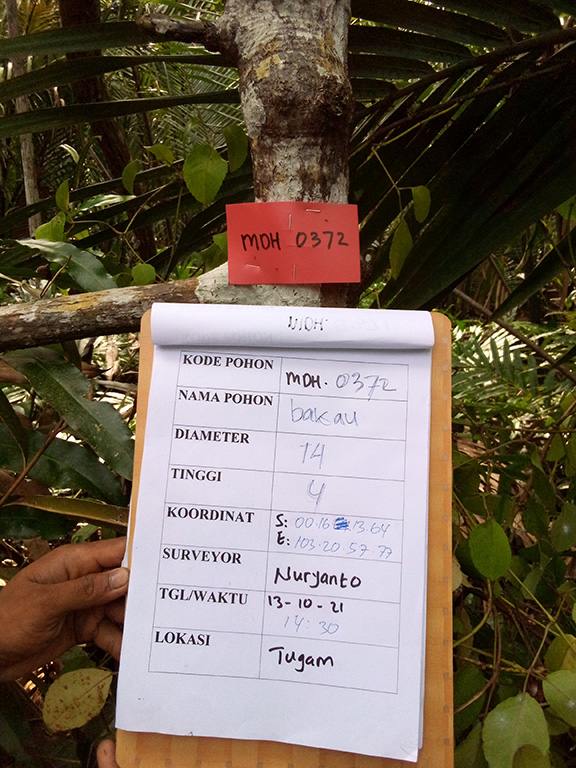 MDH 0372
MDH
KODE POHON MDH. 0372
NAMA POHON bakau
DIAMETER 14
TINGGI 4
KOORDINAT S: 00.16 13.64
E: 103.20.57.77
SURVEYOR Nurjanto
TGL/WAKTU 13-10-21
14:30
LOKASI Tugam